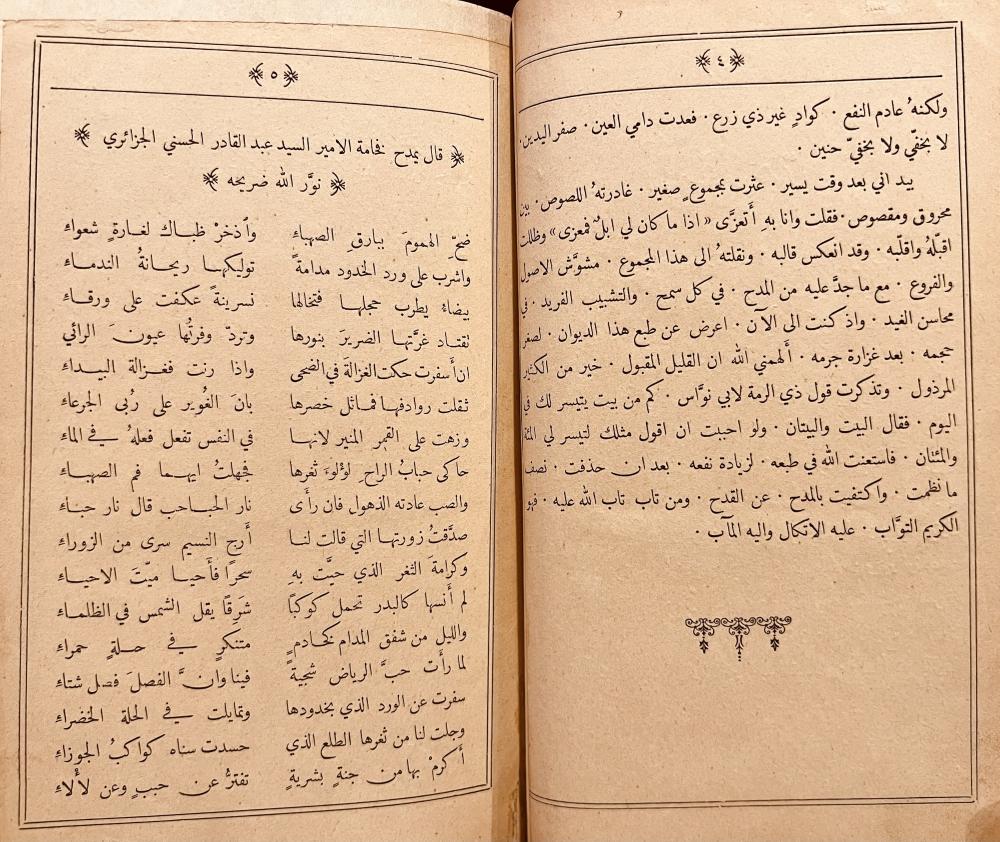 ٤
ولكنهُ عادم النفع ٠ كوادٍ غير ذي زرع ٠ فعدت دامي العين ٠ صفر اليدين ٠
لا بخفّي ولا بخفيّ حنين ٠
بيد اني بعد وقت يسير ٠ عثرت بمجموعٍ صغير ٠ غادرتهُ اللصوص ٠ بين
محروق ومقصوص ٠ فقلت وانا بهِ أَتعزَّى «اذا ما كان لي ابلٌ فمعزى» وظللت
اقبّلهُ واقلّبه ٠ وقد انعكس قالبه ٠ ونقلتهُ الى هذا المجموع ٠ مشوَّش الاصول
والفروع ٠ مع ما جدَّ عليه من المدح ٠ في كل سمح ٠ والتشبيب الفريد ٠ في
محاسن الغيد ٠ واذ كنت الى الآن ٠ اعرض عن طبع هذا الديوان ٠ لصغر
حجمه ٠ بعد غزارة جرمه ٠ أَلهمني الله ان القليل المقبول ٠ خير من الكثير
المرذول ٠ وتذكرت قول ذي الرمة لابي نوَّاس ٠ كم من بيت يتيسر لك في
اليوم ٠ فقال البيت والبيتان ٠ ولو احببت ان اقول مثلك لتيسر لي المئة
والمئتان ٠ فاستعنت الله في طبعه ٠ لزيادة نفعه ٠ بعد ان حذفت ٠ نصف
ما نظمت ٠ واكتفيت بالمدح ٠ عن القدح ٠ ومن تاب تاب الله عليه ٠ فهو
الكريم التوَّاب ٠ عليه الاتكال واليه المآب ٠
٥
قال يمدح فخامة الامير السيد عبد القادر الحسني الجزائري
نوَّر الله ضريحه
ضحِّ الهمومَ ببارقِ الصهباءِ وٱدخرْ ظباك لغارةٍ شعواءِ
واشرب على ورد الخدود مدامةً توليكها ريحانةُ الندماء
بيضاءُ يطرب حجلها فتخالها نسرينةً عكفت على ورقاء
تقتاد غرَّتها الضريرَ بنورها وتردّ وفرتُها عيونَ الرائي
ان أَسفرت حكت الغزالةَ في الضحى واذا رنت فغزالة البيداء
ثقلت روادفها فماثل خصرها بانَ الغُوير على رُبى الجرعاء
وزهت على القمر المنير لانها في النفس تفعل فعلهُ في الماء
حاكى حبابُ الراحِ لؤلوءَ ثغرها فجهلتُ ايهما فم الصهباء
والصب عادته الذهول فان رأَى نار الحباحب قال نار حباء
صدَّقتُ زورتها التي قالت لنا أَرج النسيم سرى من الزوراء
وكرامةَ الثغر الذي حيَّت بهِ سحرًا فأَحيا ميّتَ الاحياء
لم أَنسها كالبدر تحمل كوكبًا شرِقًا يقل الشمس في الظلماء
والليل من شفق المدام كخادمٍ متنكرٍ في حلةٍ حمراء
لما رأَت حبَّ الرياض شجيةً فينا وانَّ الفصلَ فصل شتاء
سفرت عن الورد الذي بخدودها وتمايلت في الحلة الخضراء
وجلت لنا من ثغرها الطلع الذي حسدت سناه كواكبُ الجوزاء
أَكرمْ بها من جنةٍ بشريةٍ تفترُّ عن حببٍ وعن لأْلاءِ